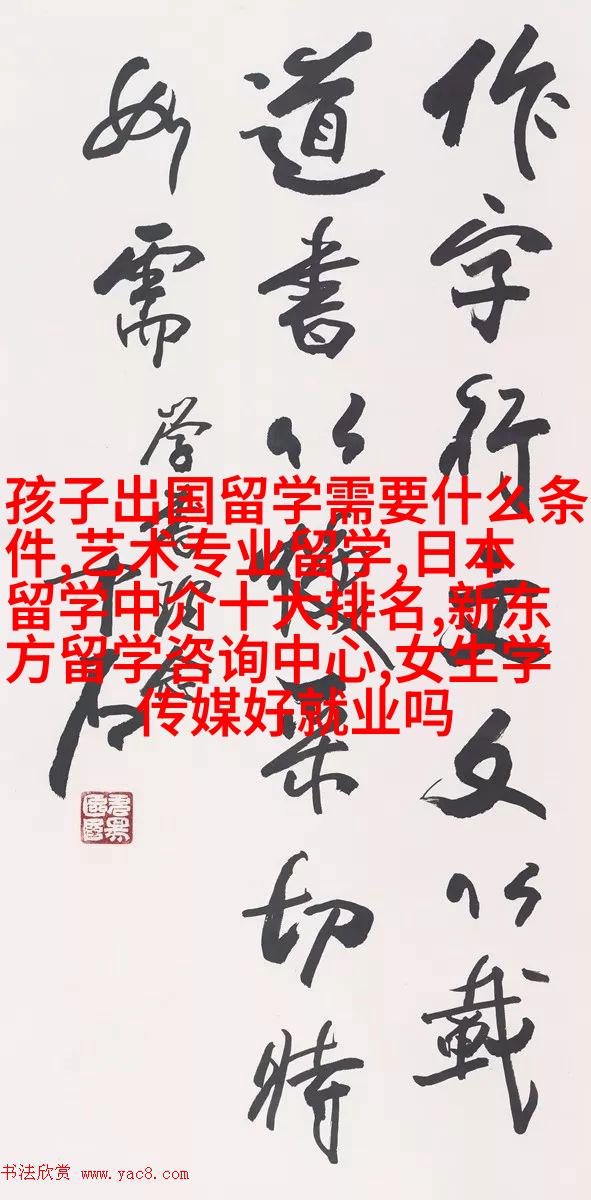 作字行文以載
道書以采切時
如需
孩子出国留学需要什么条
件,艺术专业留学,日本
留学中介十大排名,新东
方留学咨询中心,女生学
传媒好就业吗
书法欣赏 www.yac8.com